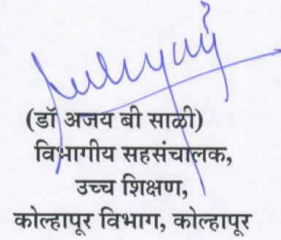 (डॉ अजय बी साळी)
विभागीय सहसंचालक,
उच्च शिक्षण,
कोल्हापूर विभाग, कोल्हापूर